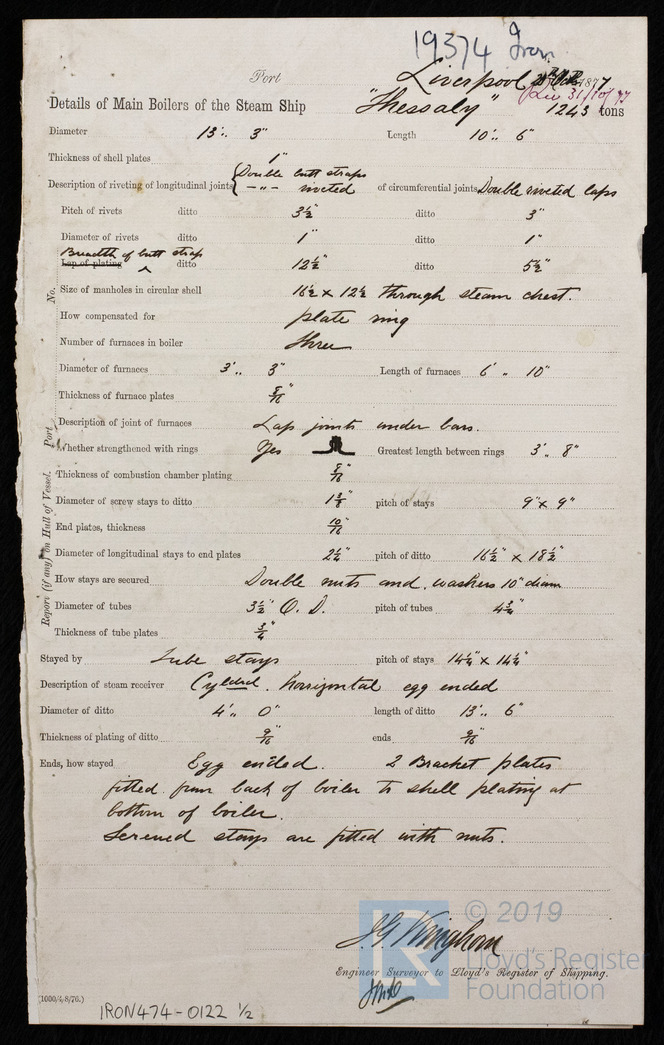 19374 Iron
Port Liverpool 1877
Rec 31/10/77
Details of Main Boilers of the Steam Ship "Thessaly" 1243 tons
Diameter 13'.. 3" Length 10'.. 6"
Thickness of shell plates 1"
Double butt straps
Description of riveting of longitudinal joints { —"— riveted of circumferential joints Double riveted laps
Pitch of rivets ditto 3½" ditto 3"
Diameter of rivets ditto 1" ditto 1"
Breadth of butt strap
Lap of plating ditto 12½" ditto 5½"
Size of manholes in circular shell 16½ x 12½ through steam chest.
How compensated for plate ring
Number of furnaces in boiler three
Diameter of furnaces 3'.. 3" Length of furnaces 6'.. 10"
Thickness of furnace plates /16"
Description of joint of furnaces Lap joints under bars.
Whether strengthened with rings Yes Greatest length between rings 3'.. 8"
Thickness of combustion chamber plating /16"
Diameter of screw stays to ditto 1⅜" pitch of stays 9" x 9"
End plates, thickness 10/16"
Diameter of longitudinal stays to end plates 2½" pitch of ditto 16½" x 18½"
How stays are secured Double nuts and washers 10" diam
Diameter of tubes 3½" O. D. pitch of tubes 4¾"
Thickness of tube plates ¾"
Stayed by tube stays pitch of stays 14¼" x 14¼"
Description of steam receiver Cyldcl. horizontal egg ended
Diameter of ditto 4'.. 0" length of ditto 13'.. 6"
Thickness of plating of ditto 9/16" ends 9/16"
Ends, how stayed Egg ended. 2 Bracket plates
fitted from back of boiler to shell plating at
bottom of boiler.
Screwed stays are fitted with nuts.
Engineer Surveyor to Lloyd's Register of Shipping.
(1000/4/8/76.)
IRON474-0122 ½
No.
Port
Report (if any) on Hull of Vessel.
LR
© 2019
Lloyd's Register
Foundation